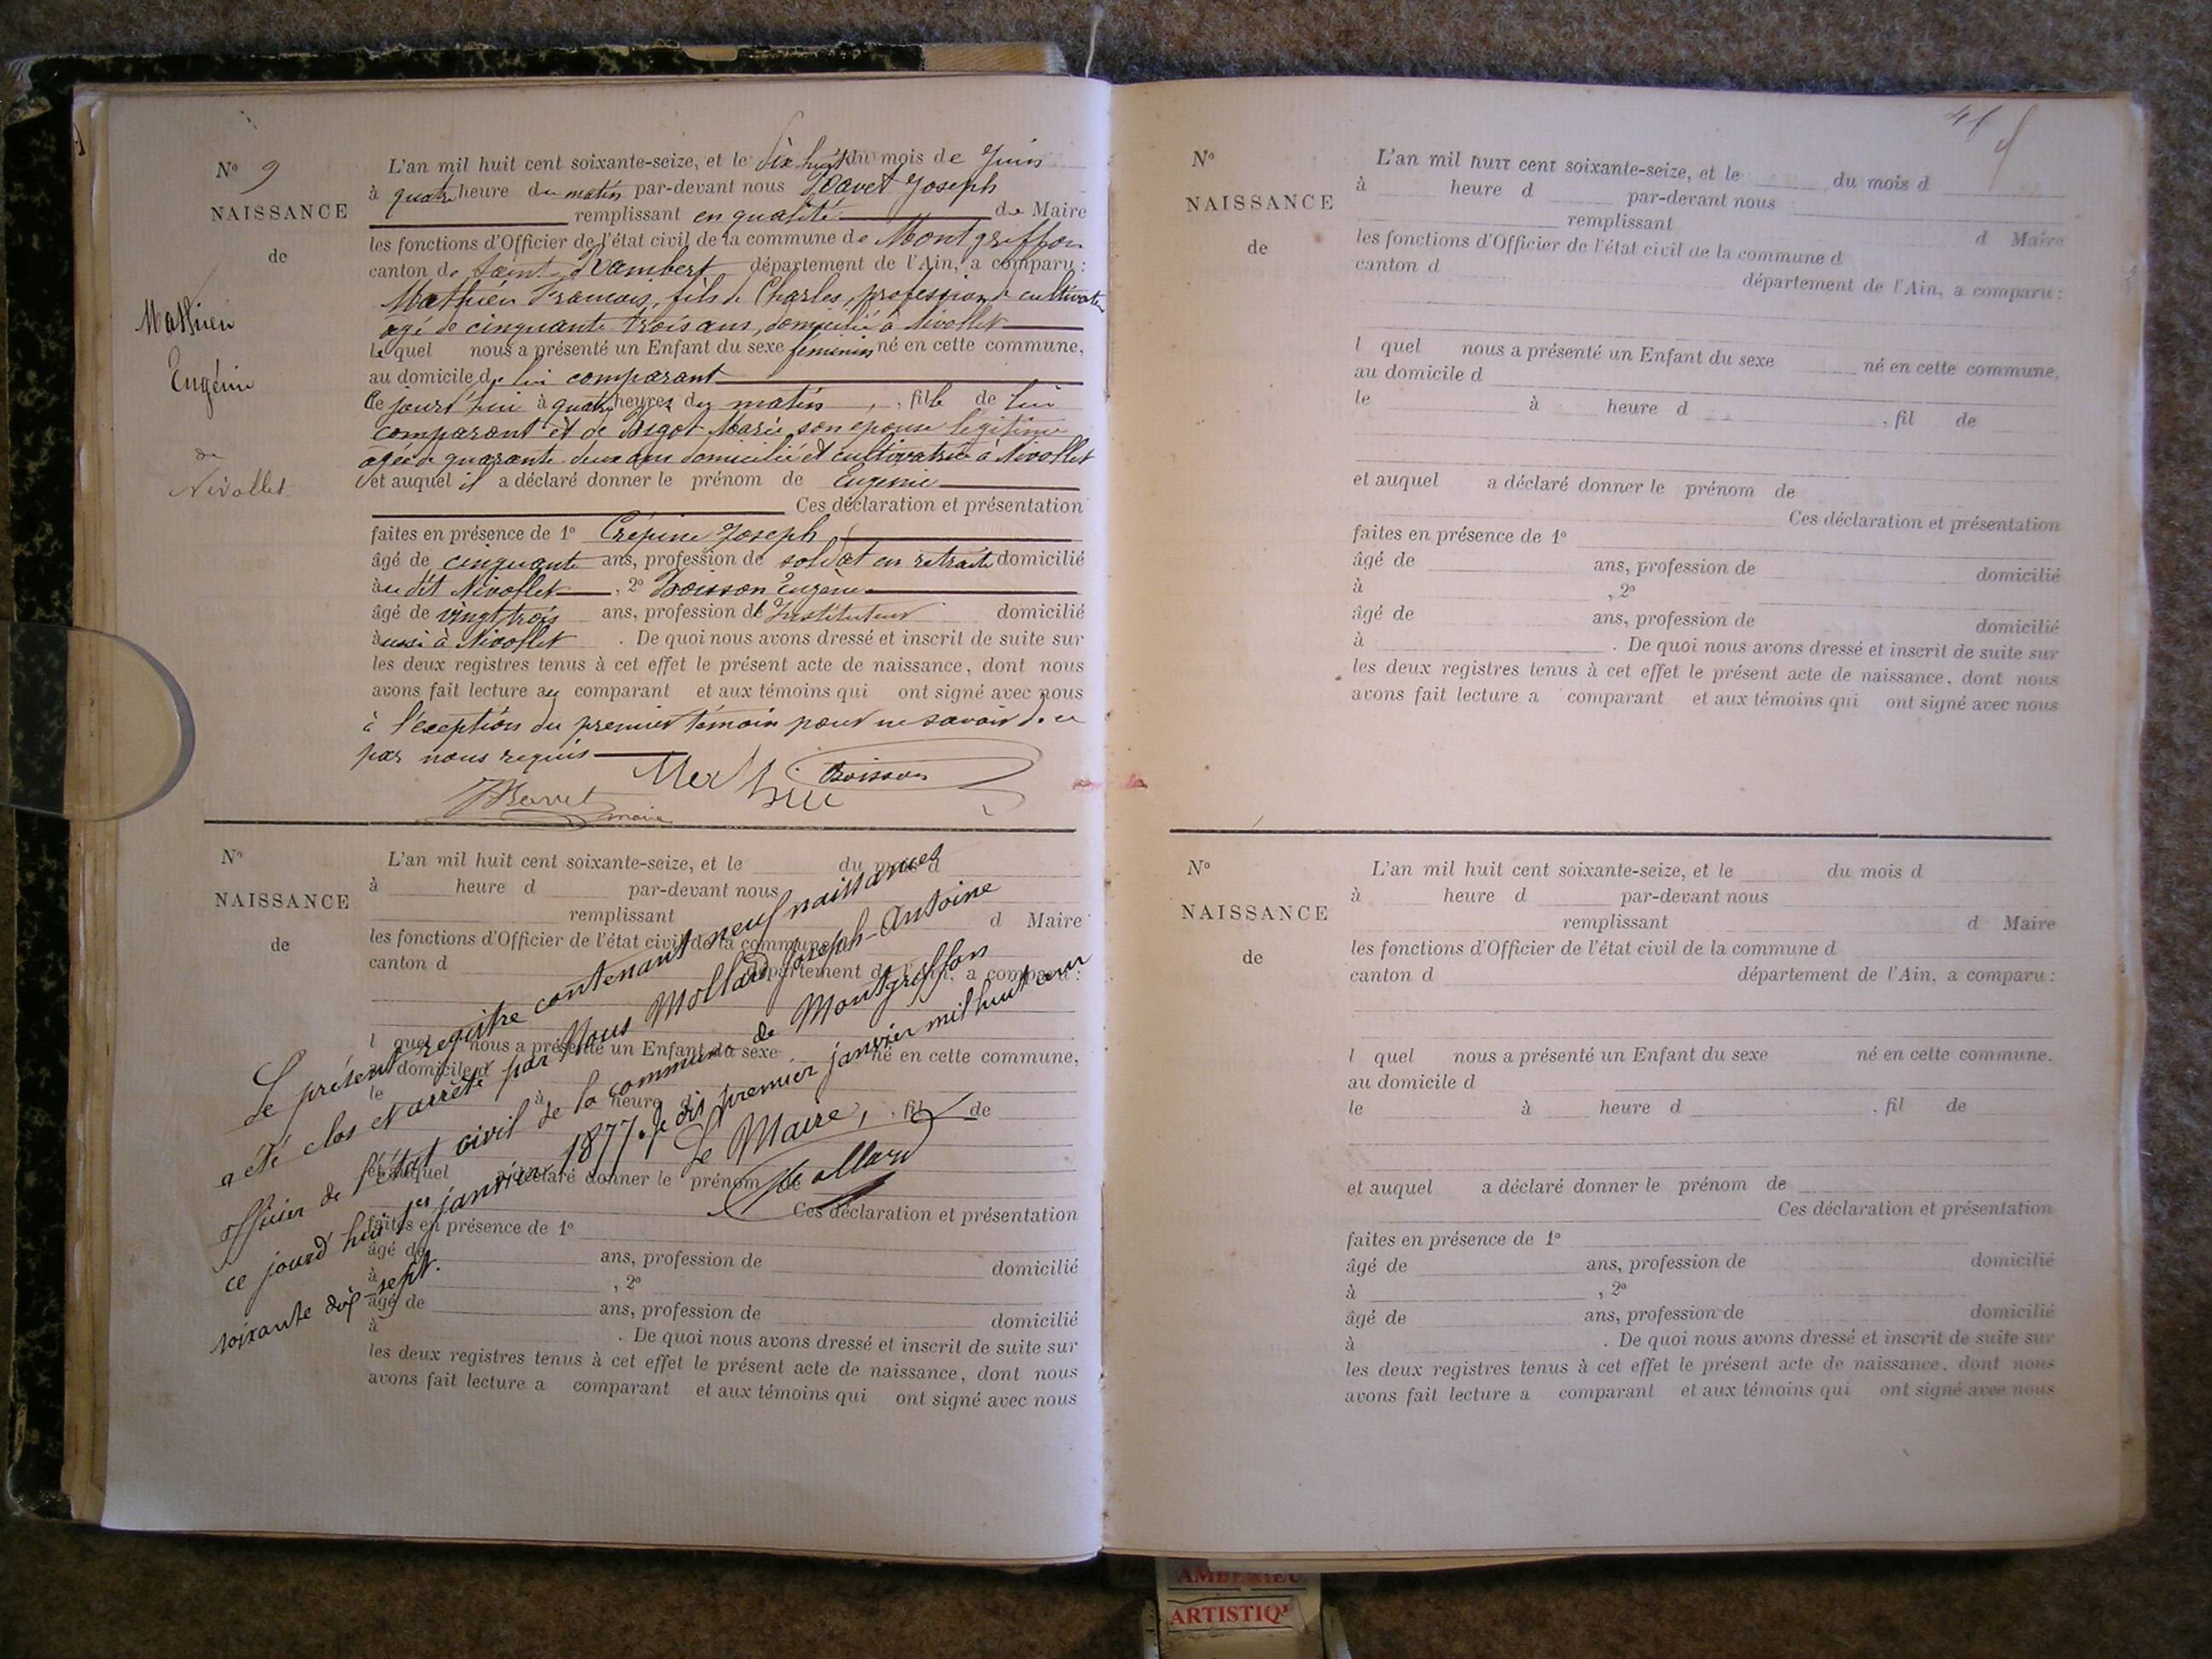 N° 9
NAISSANCE
de
Mathieu
Eugénie
de
Nivollet
L'an mil huit cent soixante-seize, et le dix huit du mois de Juin
à quatre heure du matin par-devant nous Joseph
remplissant en qualité de Maire
les fonctions d'Officier de l'état civil de la commune de Montgriffon
canton de Saint Rambert département de l'Ain, a comparu :
Mathieu Francois, fils de Charles, profession de cultivateur
agé de cinquante trois ans, domicilié à Nivollet
le quel nous a présenté un Enfant du sexe féminin né en cette commune,
au domicile de lui comparant
le jourd'hui à quatre heures du matin, fille de lui
comparant et de Marie son epouse legitime
agée de quarante deux ans domiciliée et cultivatrice à Nivollet
et auquel il a déclaré donner le prénom de Eugenie
Ces déclaration et présentation
faites en présence de 1° Crépine Joseph
âgé de cinquante ans, profession de soldat en retraite domicilié
au dit Nivollet, 2° Eugène
âgé de vingt trois ans, profession d' Instituteur domicilié
aussi à Nivollet. De quoi nous avons dressé et inscrit de suite sur
les deux registres tenus à cet effet le présent acte de naissance, dont nous
avons fait lecture au comparant et aux témoins qui ont signé avec nous
à l'éxeption du premier témoin pour ne savoir de ce
par nous requis
maire
N°
NAISSANCE
de
L'an mil huit cent soixante-seize, et le du mois d
à heure d par-devant nous
remplissant d Maire
les fonctions d'Officier de l'état civil de la commune d
canton d département de l'Ain, a comparu :
l quel nous a présenté un Enfant du sexe né en cette commune,
au domicile d
le à heure d , fil de
et auquel a déclaré donner le prénom de
Ces déclaration et présentation
faites en présence de 1°
âgé de ans, profession de domicilié
à , 2°
âgé de ans, profession de domicilié
à . De quoi nous avons dressé et inscrit de suite sur
les deux registres tenus à cet effet le présent acte de naissance, dont nous
avons fait lecture a comparant et aux témoins qui ont signé avec nous
Le présent registre contenant neuf naissances
a été clos et arrêté par Nous Mollard Joseph-Antoine
officier de l'état civil de la commune de Montgriffon
ce jourd'hui 1er janvier 1877. Je dis premier janvier mil huit cent
soixante dix-sept.
Le Maire,
Mollard
N°
NAISSANCE
de
L'an mil huit cent soixante-seize, et le du mois d
à heure d par-devant nous
remplissant d Maire
les fonctions d'Officier de l'état civil de la commune d
canton d département de l'Ain, a comparu :
l quel nous a présenté un Enfant du sexe né en cette commune,
au domicile d
le à heure d , fil de
et auquel a déclaré donner le prénom de
Ces déclaration et présentation
faites en présence de 1°
âgé de ans, profession de domicilié
à , 2°
âgé de ans, profession de domicilié
à . De quoi nous avons dressé et inscrit de suite sur
les deux registres tenus à cet effet le présent acte de naissance, dont nous
avons fait lecture a comparant et aux témoins qui ont signé avec nous
N°
NAISSANCE
de
L'an mil huit cent soixante-seize, et le du mois d
à heure d par-devant nous
remplissant d Maire
les fonctions d'Officier de l'état civil de la commune d
canton d département de l'Ain, a comparu :
l quel nous a présenté un Enfant du sexe né en cette commune.
au domicile d
le à heure d , fil de
et auquel a déclaré donner le prénom de
Ces déclaration et présentation
faites en présence de 1°
âgé de ans, profession de domicilié
à , 2°
âgé de ans, profession de domicilié
à . De quoi nous avons dressé et inscrit de suite sur
les deux registres tenus à cet effet le présent acte de naissance, dont nous
avons fait lecture a comparant et aux témoins qui ont signé avec nous